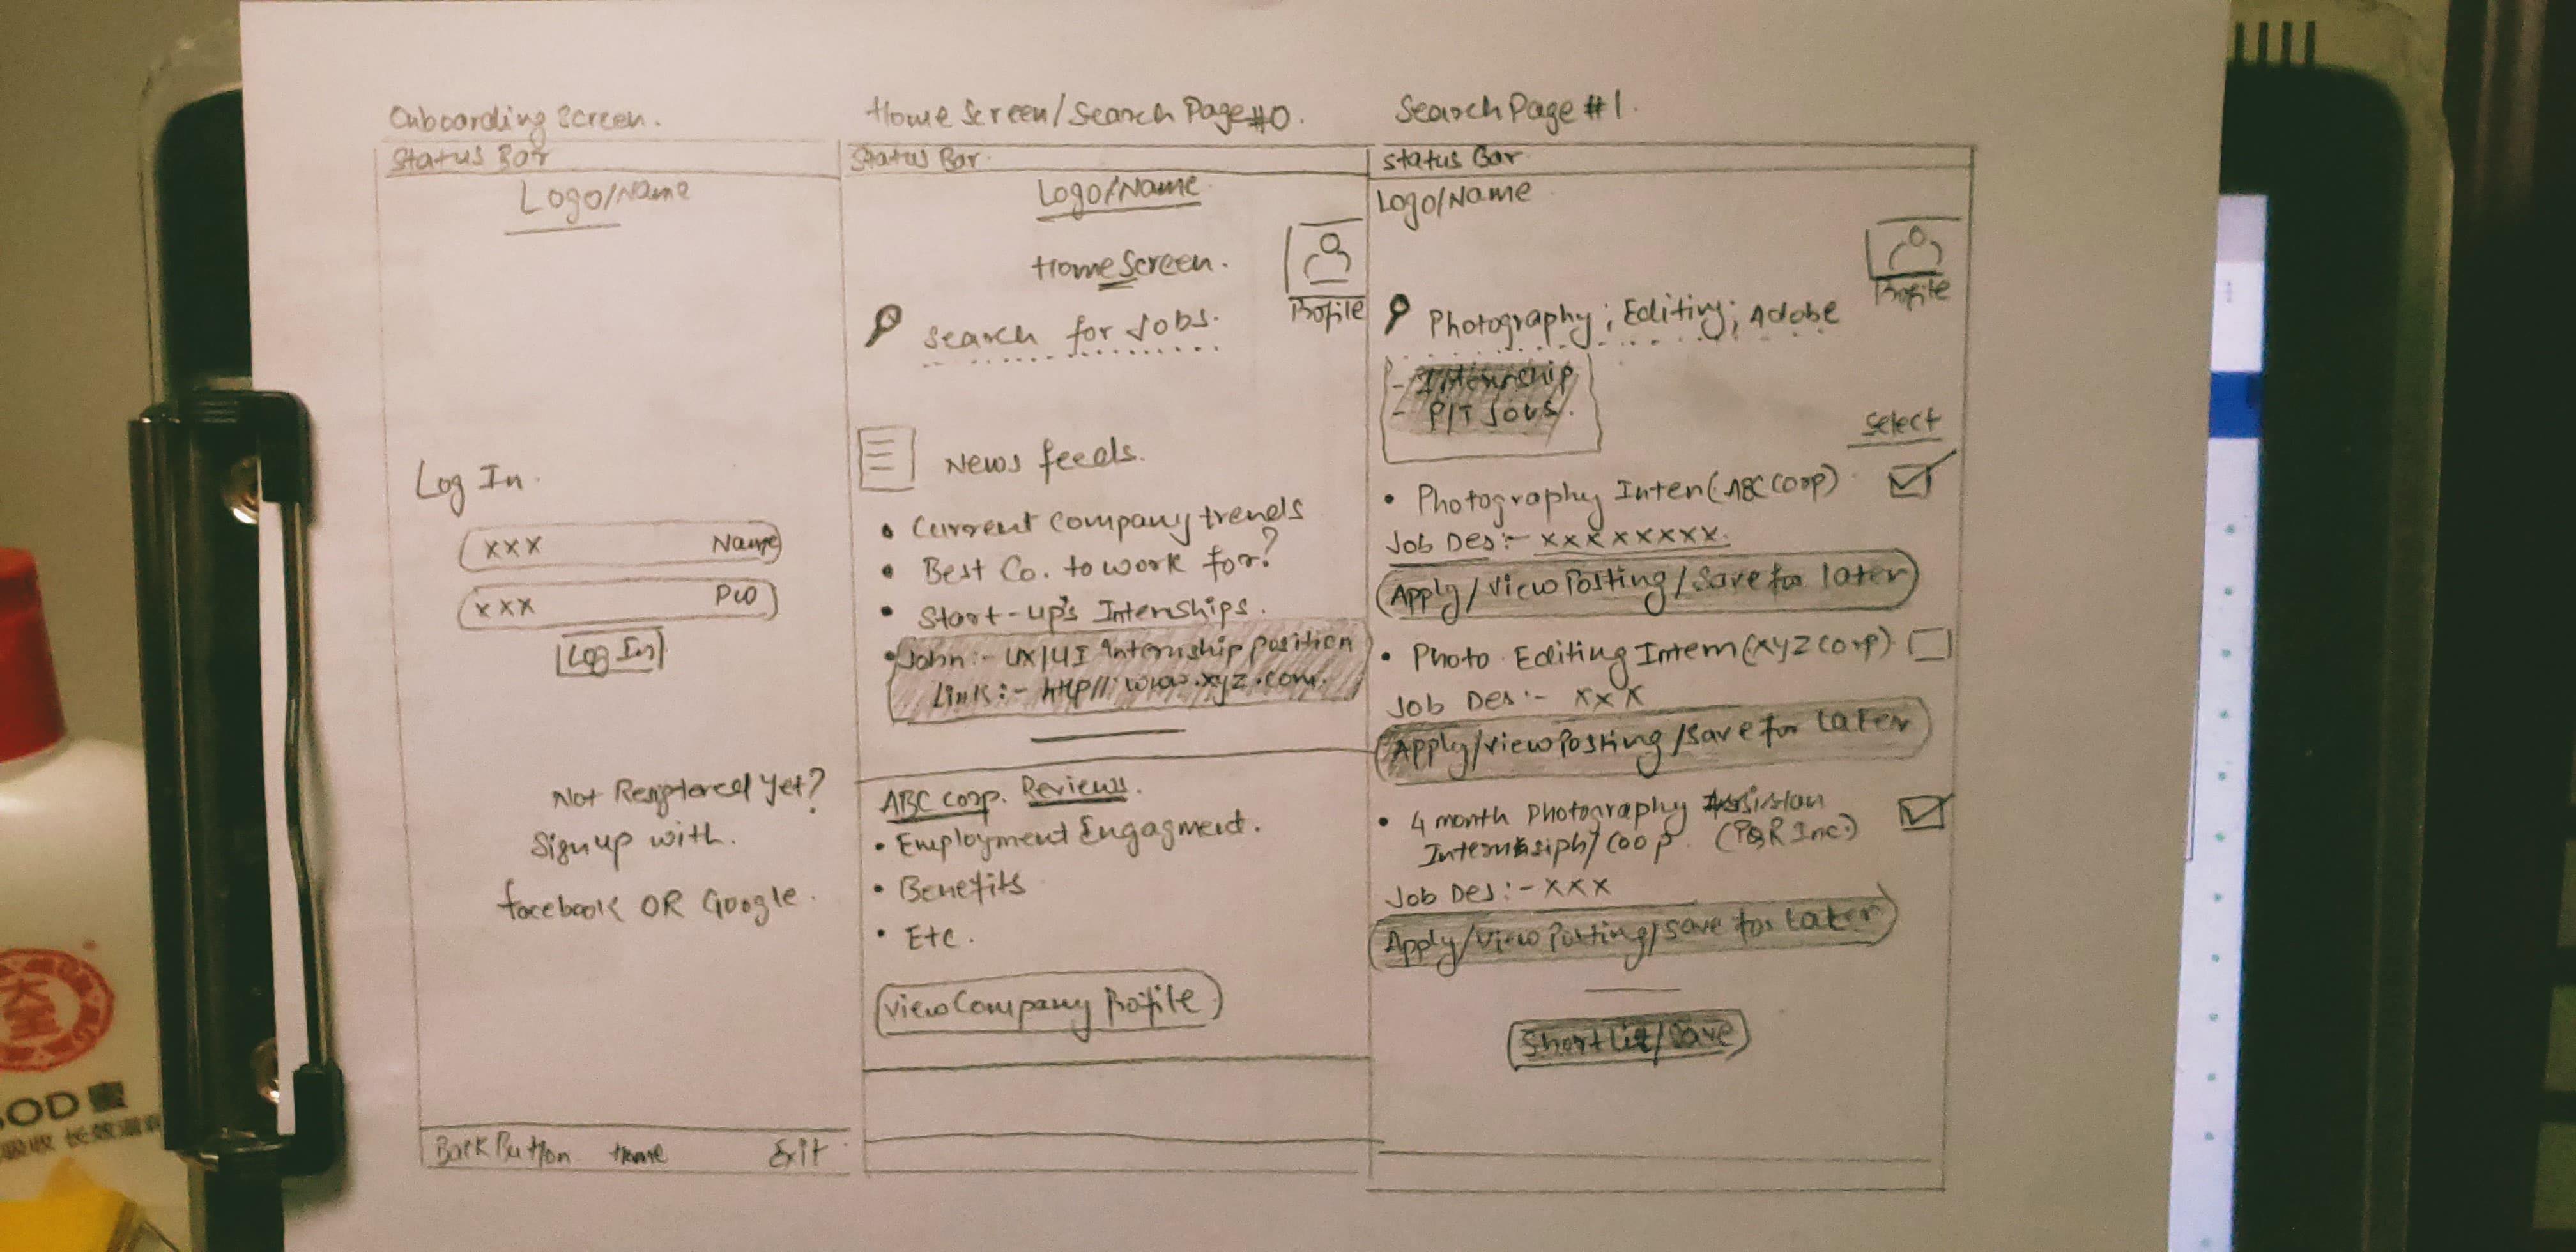 Onboarding Screen.
Status Bar
Logo/Name
Log In.
xxx Name
xxx PW
Log In
Not Registered Yet?
Sign up with.
facebook OR Google.
Back Button Home Exit
Home Screen/Search Page#0.
Status Bar.
Logo/Name
Home Screen.
Profile
Search for Jobs.
News feeds.
• Current Company trends
• Best Co. to work for?
• Start-up's Internships.
• John:- UX/UI Internship position
Link:- http//:www.xyz.com.
ABC Corp. Reviews.
• Employment Engagment.
• Benefits
• Etc.
View Company Profile
Search Page #1.
Status Bar.
Logo/Name
Profile
Photography; Editing; Adobe
- Internship
- P/T Jobs.
Select
• Photography Inten (ABC Corp)
Job Des:- xxxxxxxxx.
Apply/View Posting/Save for later
• Photo Editing Intern (XYZ Corp)
Job Des:- xxx
Apply/View Posting/Save for Later
• 4 month Photography
/Coop. (PQR Inc.)
Job Des:- xxx
Apply/View Posting/Save for Later
Shortlist/Save
大
SOD蜜
吸收 长效滋